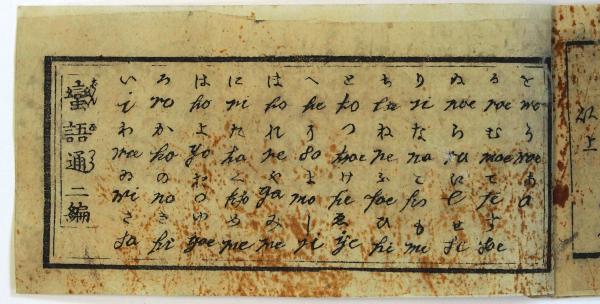 蠻語通二編
ばんごつう
い ろ は に ほ へ と ち り ぬ る を
i ro ho ni ho he to ri noe roe wo
わ か よ た れ そ つ ね な ら む う
wa ka yo ta re so toe ne na ra moe woe
ゐ の お く や ま け ふ こ え て あ
wi no ya mo ke foe ko e te a
さ き ゆ め み し ゑ ひ も せ す
sa ki yoe me me si ye hi me se soe
以上